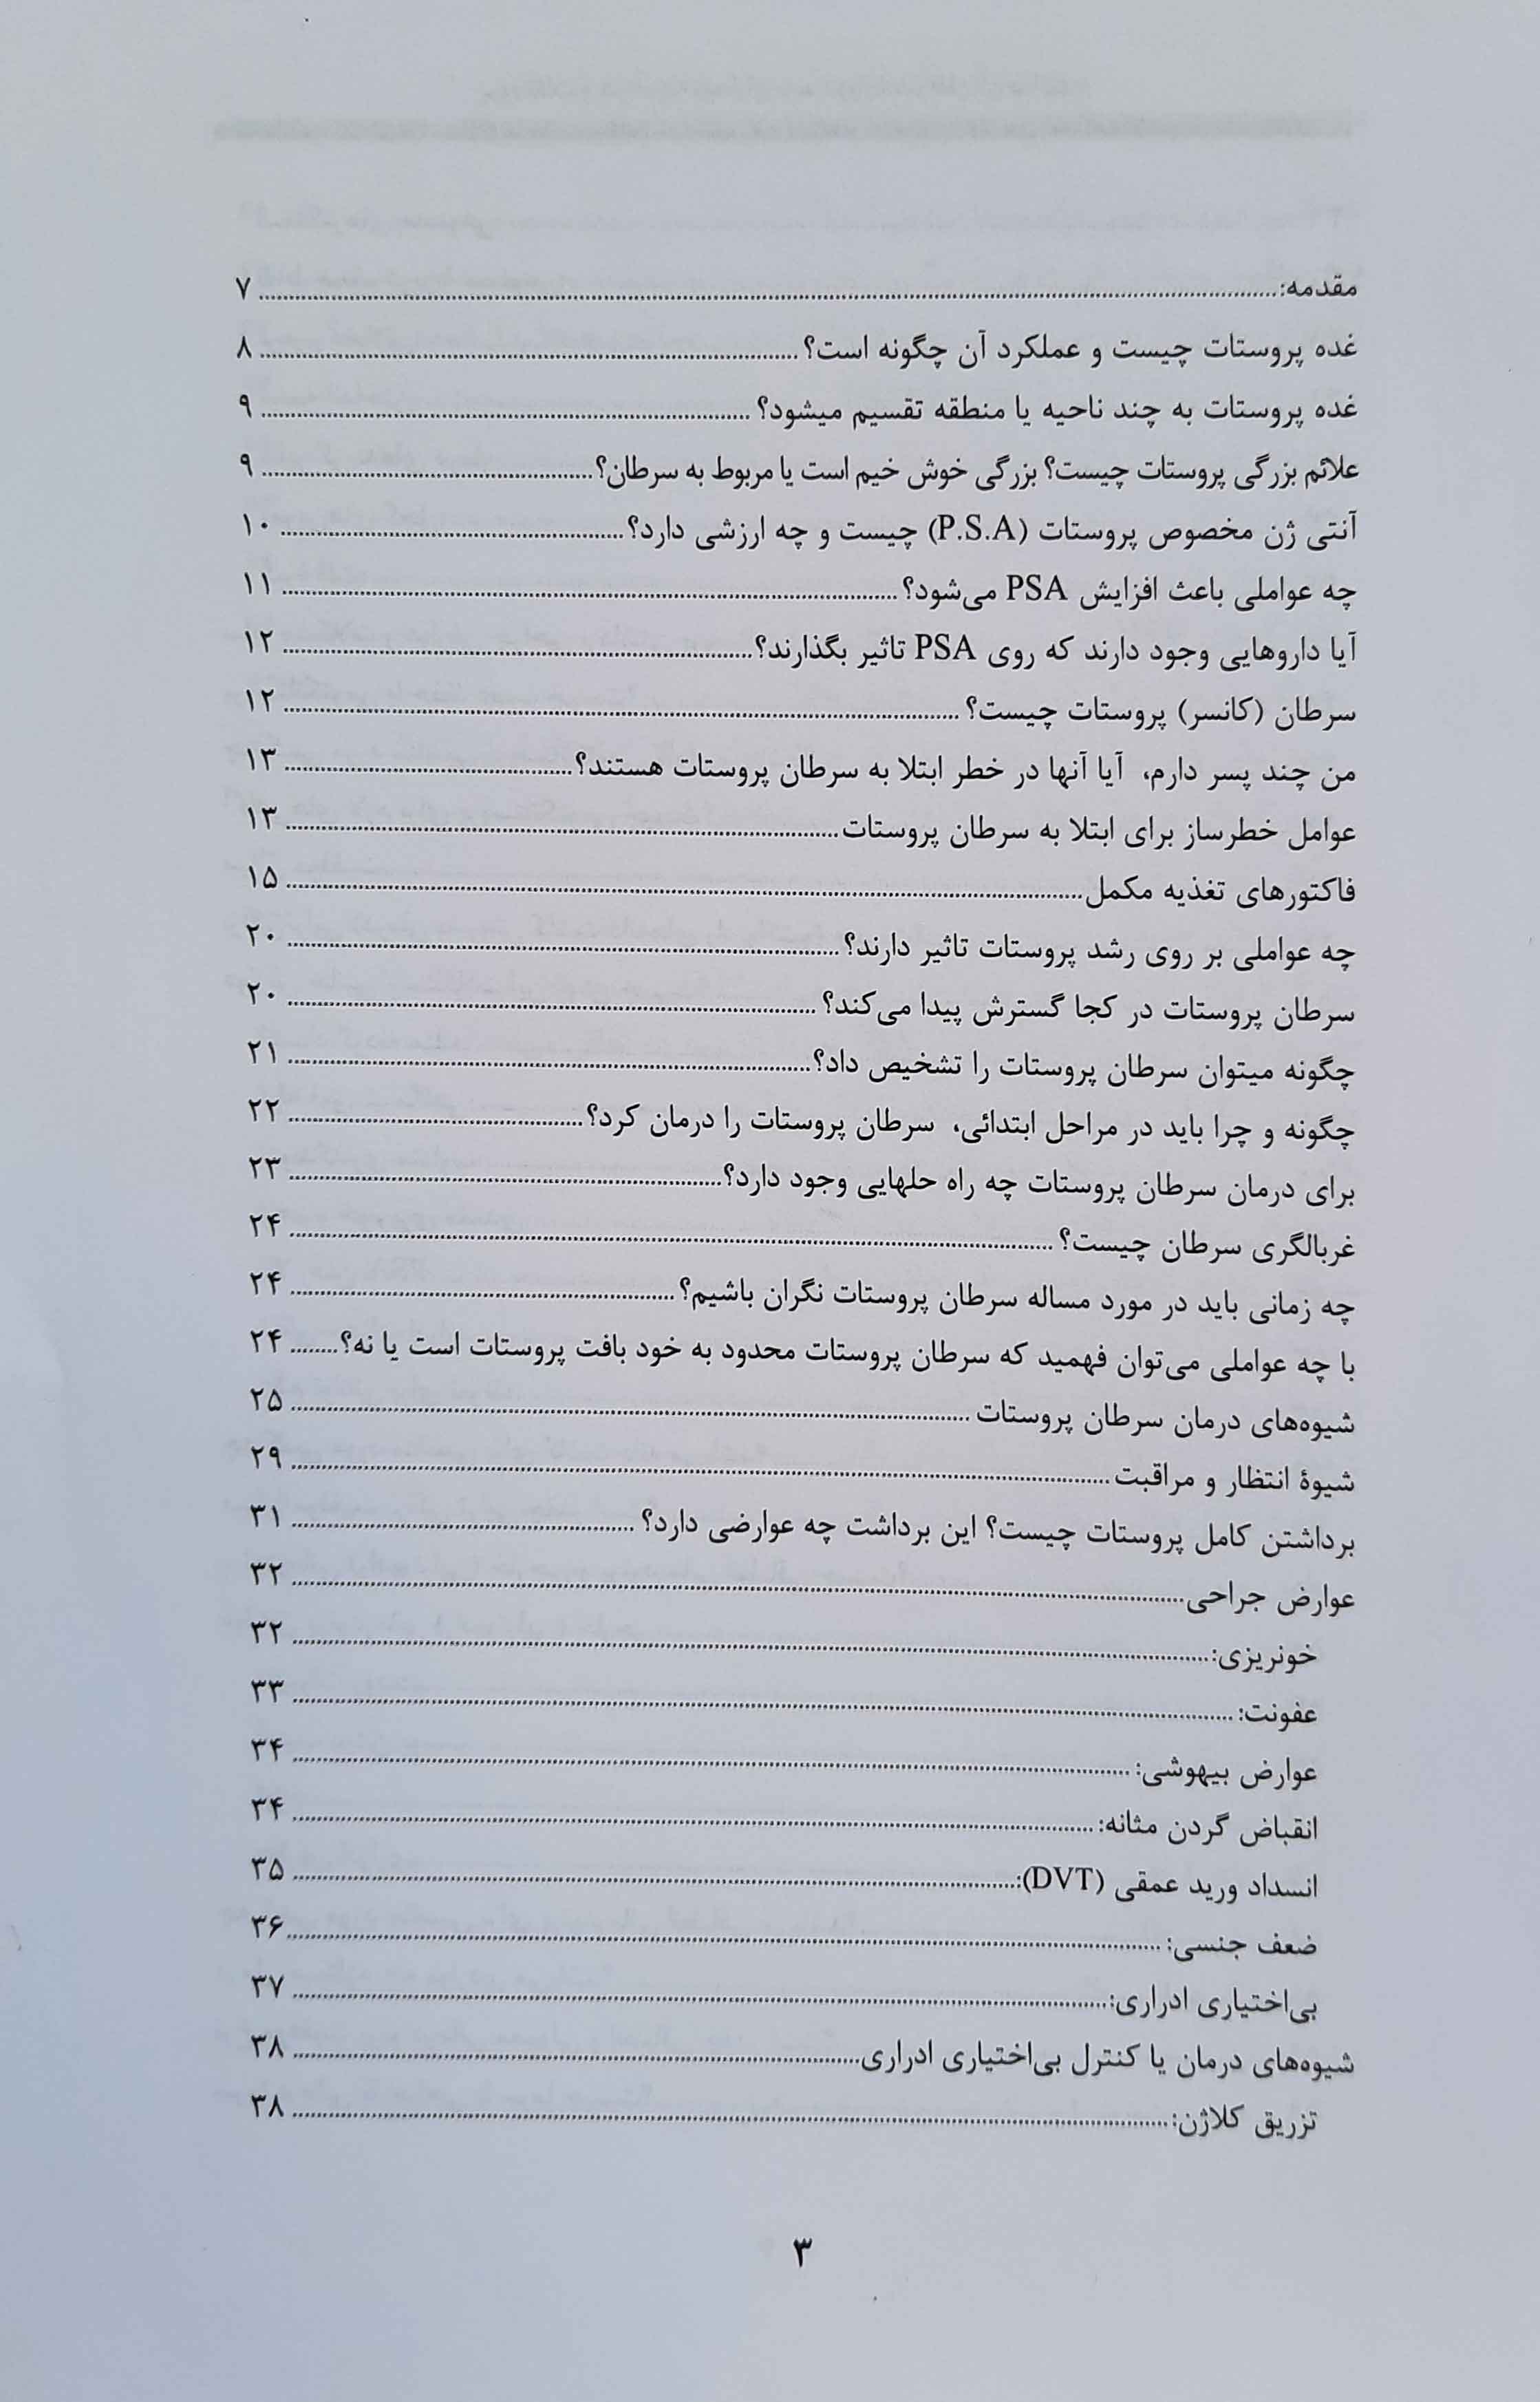 مقدمه: ۷
غده پروستات چیست و عملکرد آن چگونه است؟ ۸
غده پروستات به چند ناحیه یا منطقه تقسیم میشود؟ ۹
علائم بزرگی پروستات چیست؟ بزرگی خوش خیم است یا مربوط به سرطان؟ ۹
آنتی ژن مخصوص پروستات (P.S.A) چیست و چه ارزشی دارد؟ ۱۰
چه عواملی باعث افزایش PSA می‌شود؟ ۱۱
آیا داروهایی وجود دارند که روی PSA تاثیر بگذارند؟ ۱۲
سرطان (کانسر) پروستات چیست؟ ۱۲
من چند پسر دارم، آیا آنها در خطر ابتلا به سرطان پروستات هستند؟ ۱۳
عوامل خطرساز برای ابتلا به سرطان پروستات ۱۳
فاکتورهای تغذیه مکمل ۱۵
چه عواملی بر روی رشد پروستات تاثیر دارند؟ ۲۰
سرطان پروستات در کجا گسترش پیدا می‌کند؟ ۲۰
چگونه میتوان سرطان پروستات را تشخیص داد؟ ۲۱
چگونه و چرا باید در مراحل ابتدائی، سرطان پروستات را درمان کرد؟ ۲۲
برای درمان سرطان پروستات چه راه حلهایی وجود دارد؟ ۲۳
غربالگری سرطان چیست؟ ۲۴
چه زمانی باید در مورد مساله سرطان پروستات نگران باشیم؟ ۲۴
با چه عواملی می‌توان فهمید که سرطان پروستات محدود به خود بافت پروستات است یا نه؟ ۲۴
شیوه‌های درمان سرطان پروستات ۲۵
شیوهٔ انتظار و مراقبت ۲۹
برداشتن کامل پروستات چیست؟ این برداشت چه عوارضی دارد؟ ۳۱
عوارض جراحی ۳۲
خونریزی: ۳۲
عفونت: ۳۳
عوارض بیهوشی: ۳۴
انقباض گردن مثانه: ۳۴
انسداد ورید عمقی (DVT): ۳۵
ضعف جنسی: ۳۶
بی‌اختیاری ادراری: ۳۷
شیوه‌های درمان یا کنترل بی‌اختیاری ادراری ۳۸
تزریق کلاژن: ۳۸
۳